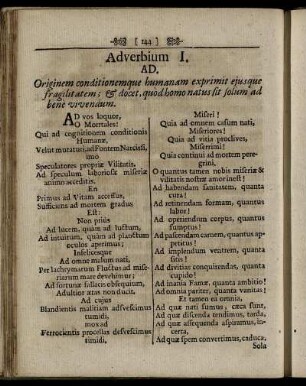 [ 144 ]
Adverbium I.
AD.
Originem conditionemque humanam exprimit ejusque
fragilitatem; & docet, quod homo natus sit solum ad
bene vivendum.
AD vos loquor,
O Mortales!
Qui ad cognitionem conditionis
Humanæ,
Velut mutatum, ad Fontem Narcissi,
imo
Speculatores propriæ Vilitatis,
Ad speculum laboriosæ miseriæ
animo acceditis.
En
Primus ad Vitam accessus,
Sufficiens ad mortem gradus
Est:
Non prius
Ad lucem, quam ad luctum,
Ad intuitum, quam ad planctum
oculos aperimus;
Infelicesque
Ad omne malum nati,
Per lachrymarum Fluctus ad miseriarum
mare devehimur;
Ad fortunæ fallacis obsequium,
Adultior ætas nos ducit.
Ad cujus
Blandientis malitiam adsvescimus
tumidi,
mox ad
Ferocientis procellas desvescimus
timidi.
Miseri!
Quia ad omnem casum nati,
Miseriores!
Qui ad vitia proclives,
Miserrimi!
Quia continui ad mortem peregrini,
O quantus tamen nobis miseriæ &
vilitatis nostræ amor inest!
Ad habendam sanitatem, quanta
cura!
Ad retinendam formam, quantus
labor!
Ad operiendum corpus, quantus
sumptus!
Ad pascendam carnem, quantus appetitus!
Ad implendum ventrem, quanta
sitis!
Ad divitias conquirendas, quanta
cupido!
Ad inania Famæ, quanta ambitio!
Ad omnia pariter, quanta vanitas!
Et tamen en omnia,
Ad quæ nati sumus, citò finit,
Ad quæ discenda tendimus, torda,
Ad quæ assequenda aspiramus, incerta,
Ad quæ spem convertimus, caduca,
Sola